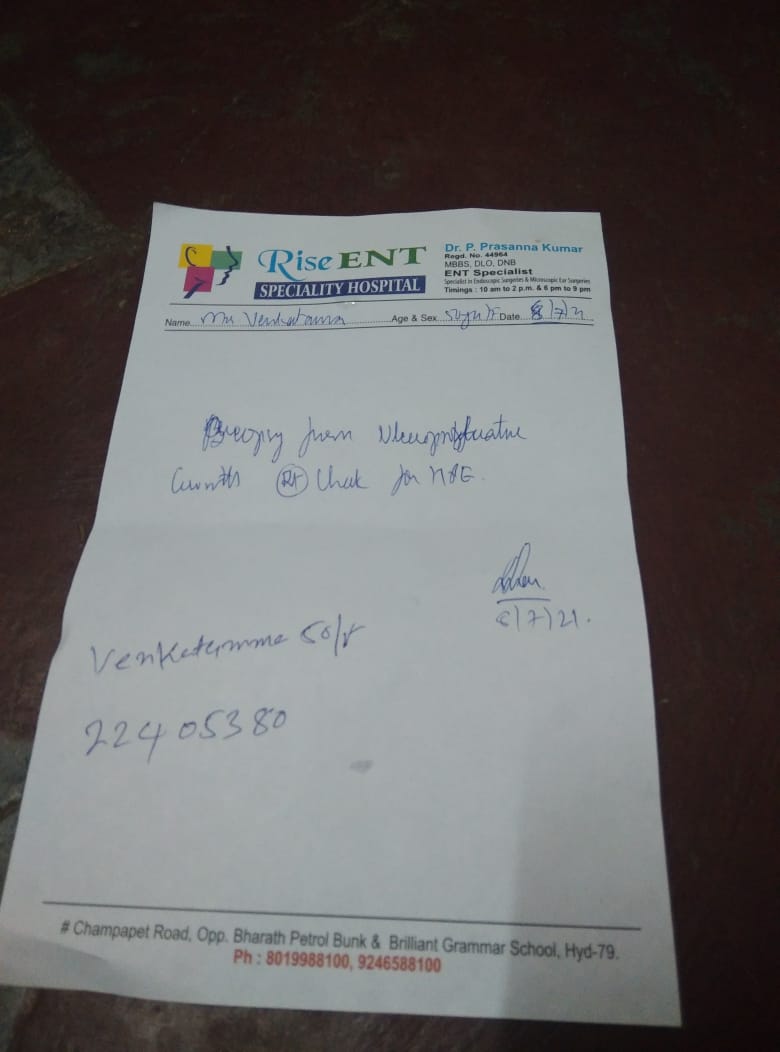 Rise ENT
SPECIALITY HOSPITAL
Dr. P. Prasanna Kumar
Regd. No. 44964
MBBS, DLO, DNB
ENT Specialist
Specialist in Endoscopic Surgeries & Microscopic Ear Surgeries
Timings : 10 am to 2 p.m. & 6 pm to 9 pm
Name Age & Sex Date 8/7/21
from
Growth Rt Cheek for HPE.
8/7/21.
Venkatamma 50/F
22405380
# Champapet Road, Opp. Bharath Petrol Bunk & Brilliant Grammar School, Hyd-79.
Ph : 8019988100, 9246588100